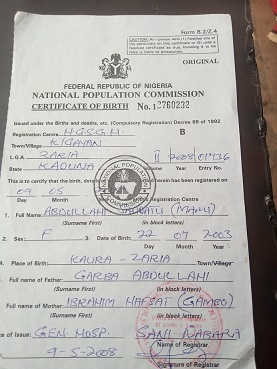 Form B.2/2.4
CAUTION: Any person who (1) Falsifies any of the particulars on this certificate or (2) uses a falsified certificate as true, knowing it to be false is liable to prosecution.
ORIGINAL
FEDERAL REPUBLIC OF NIGERIA
NATIONAL POPULATION COMMISSION
CERTIFICATE OF BIRTH No. 12760232
Issued under the Births and deaths, etc. (Compulsory Registration) Decree 69 of 1992
Registration Centre H.G.S.G.M. B
Town/Village KIGAYAN
L.G.A. ZARIA II 2008 01736
State KADUNA Year Entry No.
This is to certify that the birth, details of which are herein has been registered on
09 05
Day Month Registration Centre
1. Full Name: ABDULLAHI (MAMI)
(Surname First) (in block letters)
2. Sex: F 3. Date of Birth: 22 07 2003
Day Month Year
4. Place of Birth: KAURA - ZARIA
Town/Village
Full name of Father GARBA ABDULLAHI
(Surname First) (in block letters)
Full name of Mother IBRAHIM HAFSAT (GAMBO)
(Surname First) (in block letters)
ce of Issue: GEN. HOSP. SANI NABARA
9-5-2008 Name of Registrar
Signature of Registrar
NATIONAL POPULATION COMMISSION